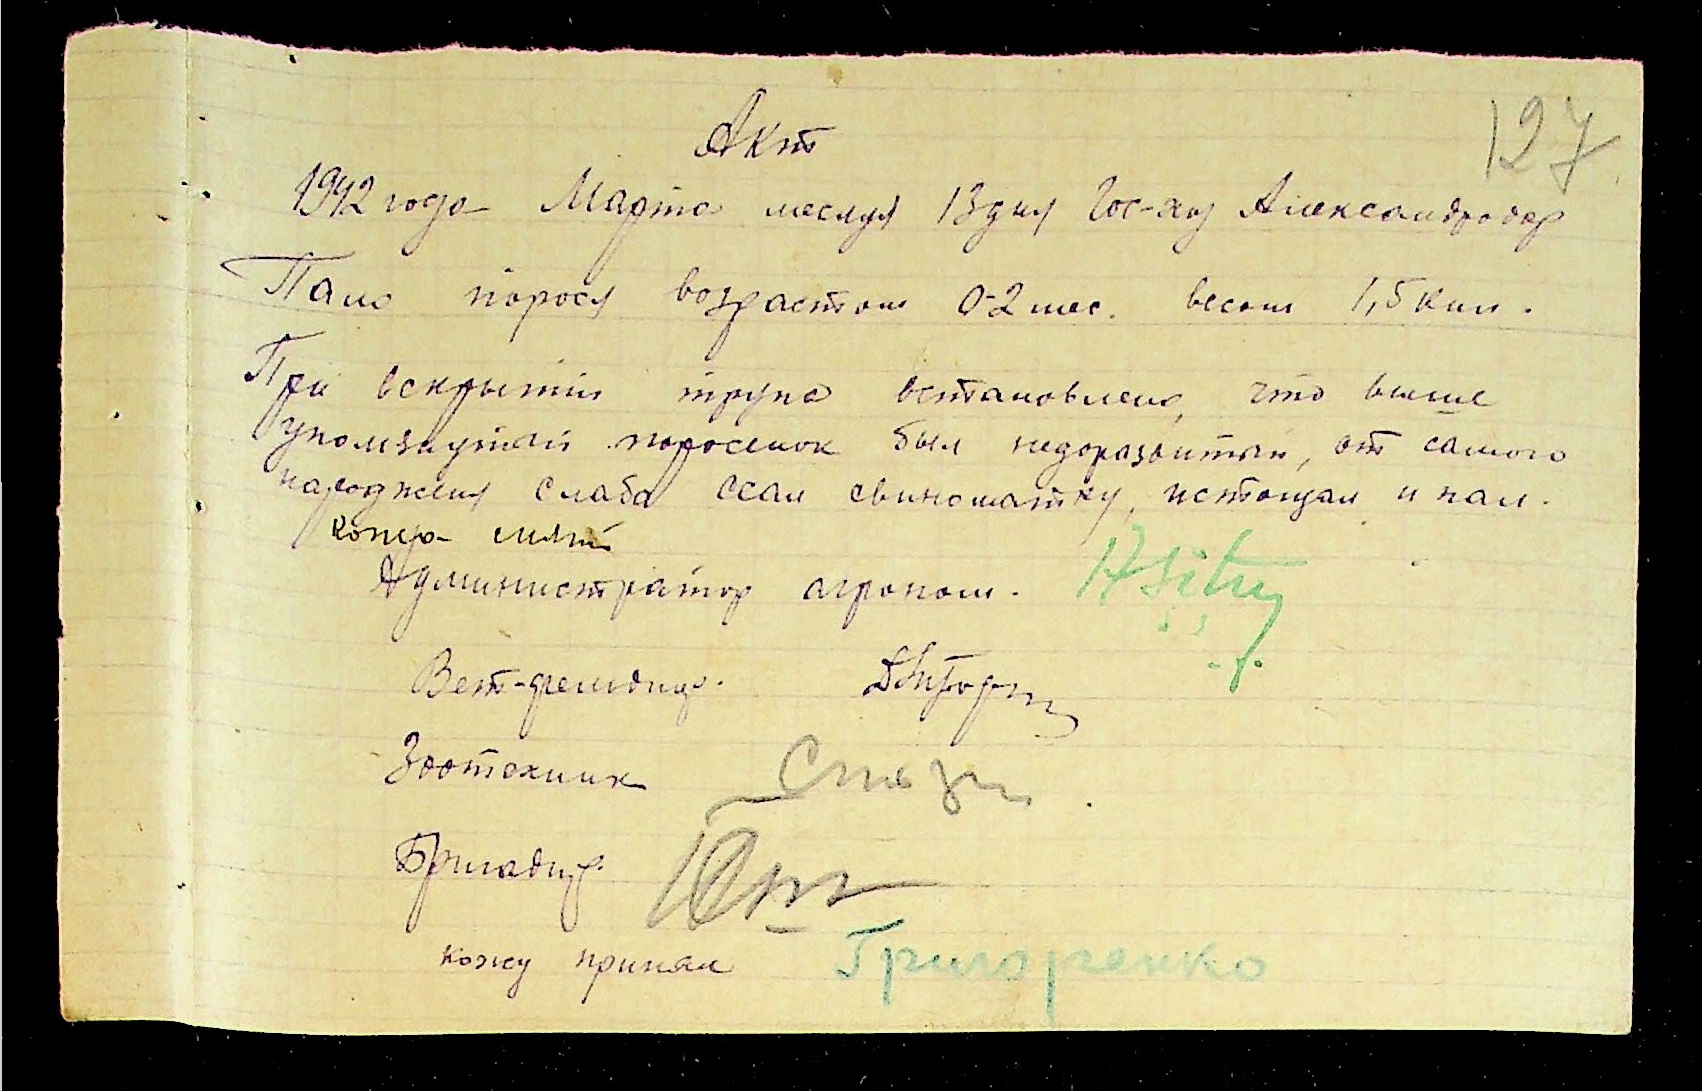 127
Акт
1942 года Марта месяця 13 дня Гос-хоз Александродар
Пало порося возрастом 0-2 мес. весом 1,5 кил.
При вскрытии трупа встановлено, что выше
упомянутый поросенок был недоразвитый, от самого
народження слабо ссал свиноматку, истощал и пал.
Кожа снята
Администратор агроном.
Вет-фельдшер.
Зоотехник
Бригадир.
кожу принял Григоренко